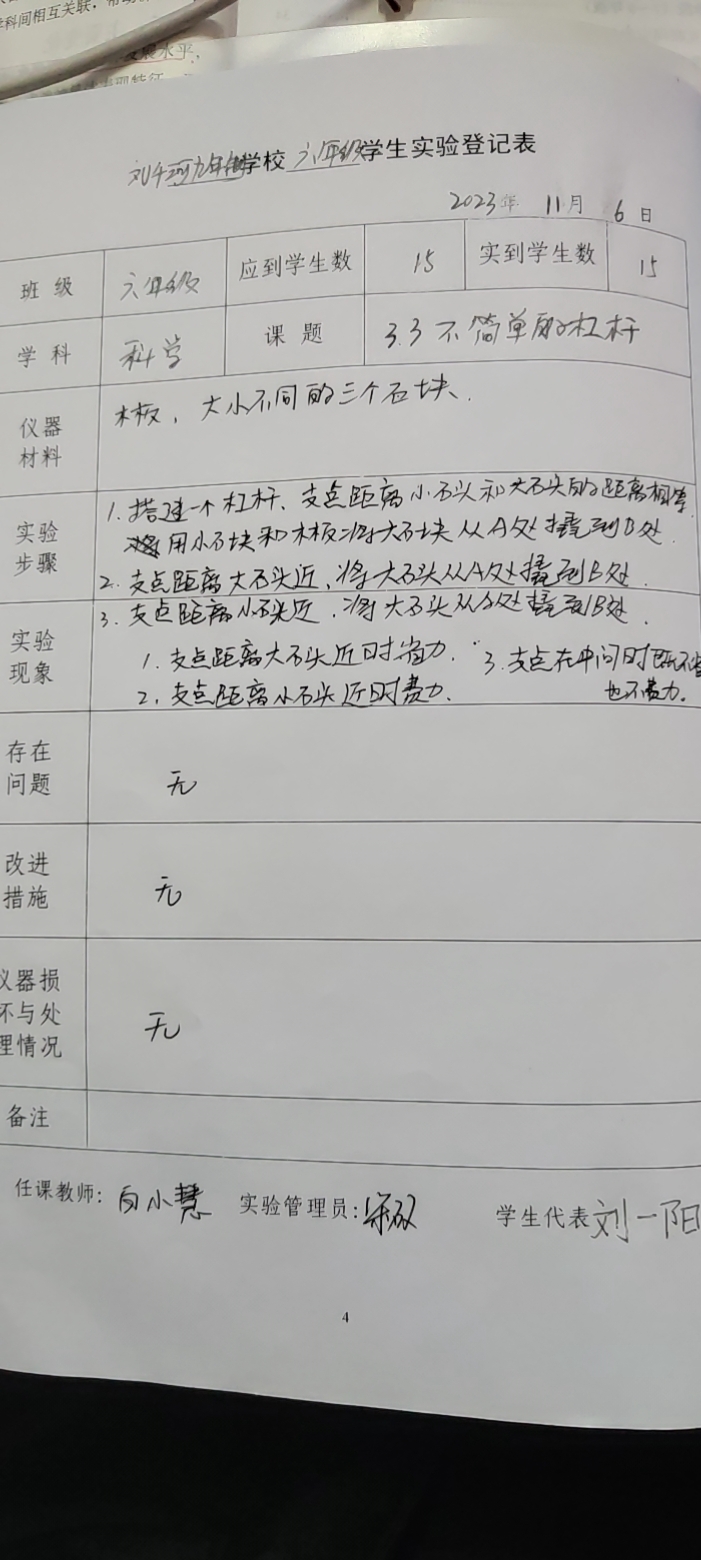 科间相互关联，
发展水平，
学校 六年级学生实验登记表
2023年 11月 6日
班级 六年级 应到学生数 15 实到学生数 15
学科 科学 课题 3.3 不简单的杠杆
仪器材料 木板，大小不同的三个石块、
实验步骤 1. 搭建一个杠杆、支点距离小石头和大石头的距离相等
用小石块和木板将大石块从A处撬到B处.
2. 支点距离大石头近，将大石头从A处撬到B处.
3. 支点距离小石头近，将大石头从A处撬到B处.
实验现象 1. 支点距离大石头近时省力. 3. 支点在中间时既不省
2. 支点距离小石头近时费力. 也不费力.
存在问题 无
改进措施 无
仪器损坏与处理情况 无
备注
任课教师：白小慧 实验管理员： 学生代表 刘一阳
4